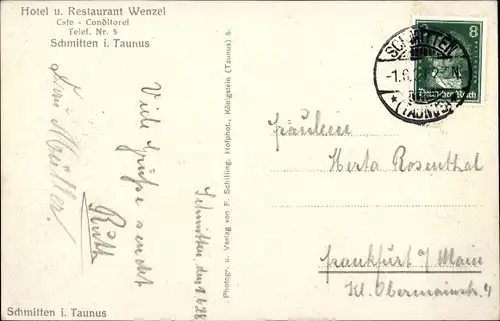 Hotel u. Restaurant Wenzel
Cafe - Conditorei
Telef. Nr. 5
Schmitten i. Taunus
Schmitten, den 1.6.28
Viele Grüße sendet
Ruth
Müller!
Schmitten i. Taunus
Photogr. u. Verlag von F. Schilling, Hofphot., Königstein (Taunus) 6.
SCHMITTEN
(TAUNUS)
8
Deutsches Reich
Fräulein
Herta Rosenthal
Frankfurt a/ Main
Kl. Obermainstr. 4